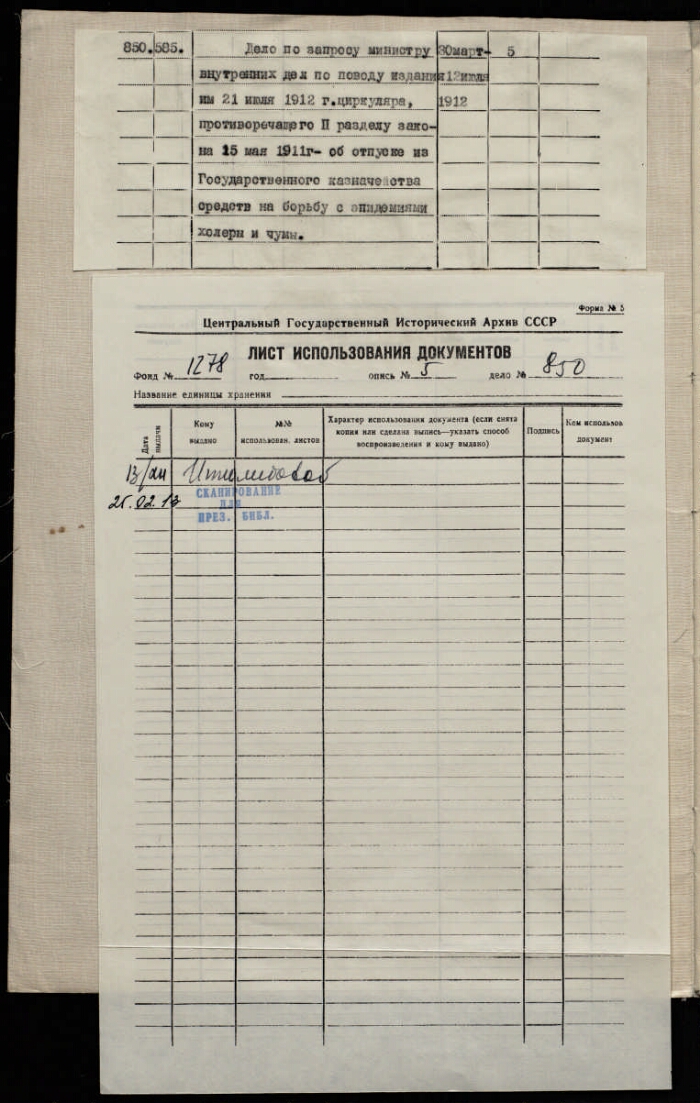 850. 585. Дело по запросу министру 30март- 5
внутренних дел по поводу издания 12июля
им 21 июля 1912 г.циркуляра, 1912
противоречащего II разделу зако-
на 15 мая 1911г- об отпуске из
Государственного казначейства
средств на борьбу с эпидемиями
холеры и чумы.
Форма № 5
Центральный Государственный Исторический Архив СССР
ЛИСТ ИСПОЛЬЗОВАНИЯ ДОКУМЕНТОВ
Фонд № 1278 год опись № 5 дело № 850
Название единицы хранения
Дата выдачи
Кому выдано
№№ использован. листов
Характер использования документа (если снята
копия или сделана выпись—указать способ
воспроизведения и кому выдано)
Подпись
Кем использов.
документ
СКАНИРОВАНИЕ
25.02.13 ДЛЯ
ПРЕЗ. БИБЛ.